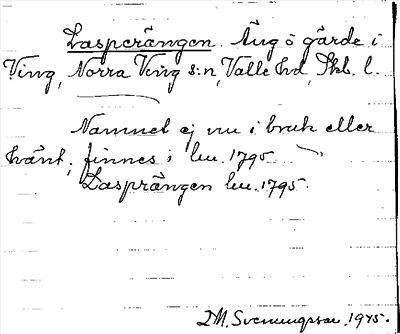 Lasperängen. Äng o gärde i
Ving, Norra Ving s:n, Valle hd, Skb. l.
Namnet ej nu i bruk eller
känt; finnes i lm. 1795
Lasprängen lm. 1795.
I M. Svenungsson 1945.